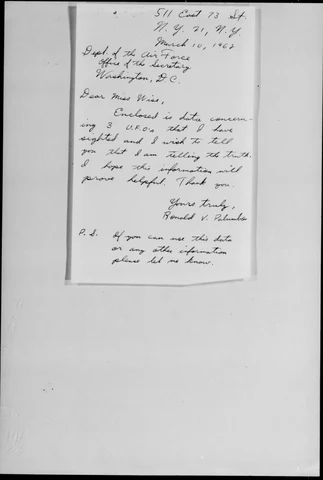 511 East 73 St.
N.Y. 21, N.Y.
March 10, 1962
Dept. of the Air Force
Office of the Secretary
Washington, D.C.
Dear Miss Wiss,
Enclosed is data concern-
ing 3 U.F.O.s that I have
sighted and I wish to tell
you that I am telling the truth.
I hope this information will
prove helpful. Thank you.
Yours truly,
Ronald V. Palumbo
P.S. If you can use this data
or any other information
please let me know.